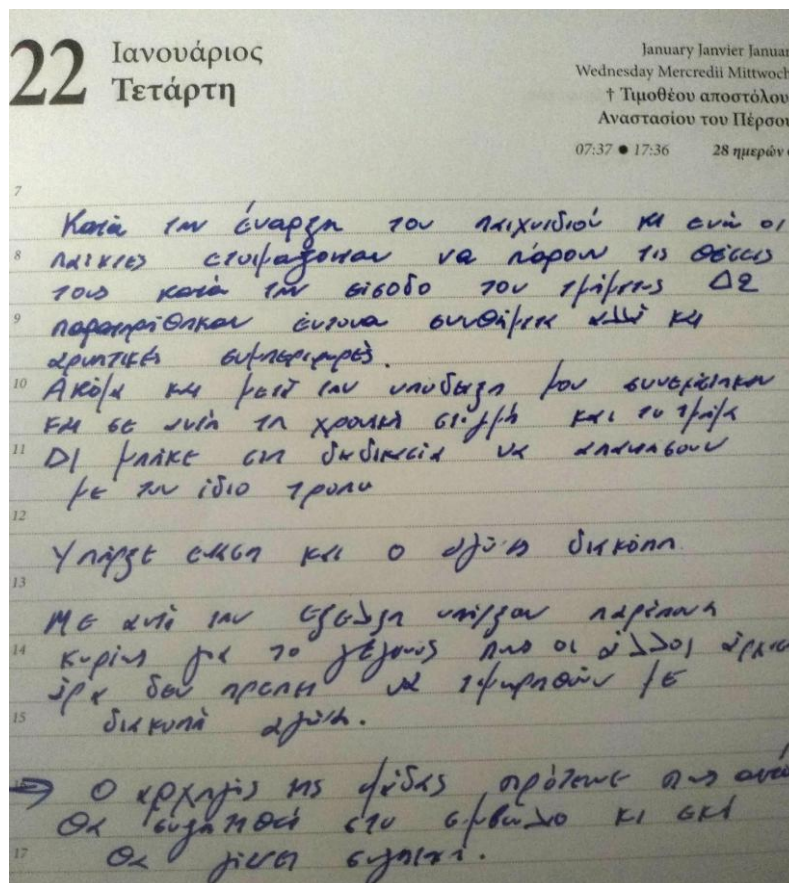 22 Ιανουάριος
Τετάρτη
January Janvier Januar
Wednesday Mercredii Mittwoch
† Τιμοθέου αποστόλου
Αναστασίου του Πέρσου
07:37 ● 17:36 28 ημερών
7
Κατά την έναρξη του παιχνιδιού κι ενώ οι
8 παίκτες ετοιμάζονταν να πάρουν τις θέσεις
τους κατά την είσοδο του τμήματος Δ2
9 παρατηρήθηκαν έντονα συνθήματα αλλά και
αρνητικές συμπεριφορές.
10 Ακόμα και μετά την υπόδειξη μου συνεχίστηκαν
και σε αυτή τη χρονική στιγμή και το τμήμα
11 Δ1 μπήκε στη διαδικασία να απαντήσουν
με τον ίδιο τρόπο
12
Υπήρξε ένταση και ο αγώνας διεκόπη.
13
Με αυτή την εξέλιξη υπήρξαν παράπονα
14 κυρίως για το γεγονός πως οι άλλοι άρχισαν
άρα δεν πρέπει να τιμωρηθούν με
15 διακοπή αγώνα.
→ Ο αρχηγός της ομάδας πρότεινε πως αυτό
θα συζητηθεί στο συμβούλιο κι εκεί
17 θα γίνει συζήτηση.